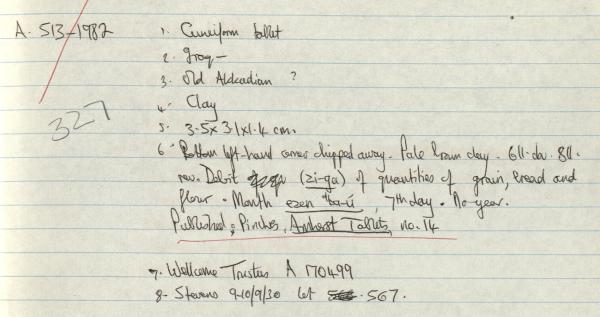 A. 513-1982
1. Cuneiform tablet
2. Iraq -
3. Old Akkadian ?
327
4. Clay
5. 3.5 x 3.1 x 1.4 cm.
6. Bottom left-hand corner chipped away. Pale brown clay. 6 ll. obv. 8 ll.
rev. Debit (zi-ga) of quantities of grain, bread and
flour. Month ezen ba-ú, 7th day. No year.
Published: Pinches, Amherst Tablets, no. 14
7. Wellcome Trustees A 170499
8. Stevens 9-10/9/30 lot 567.